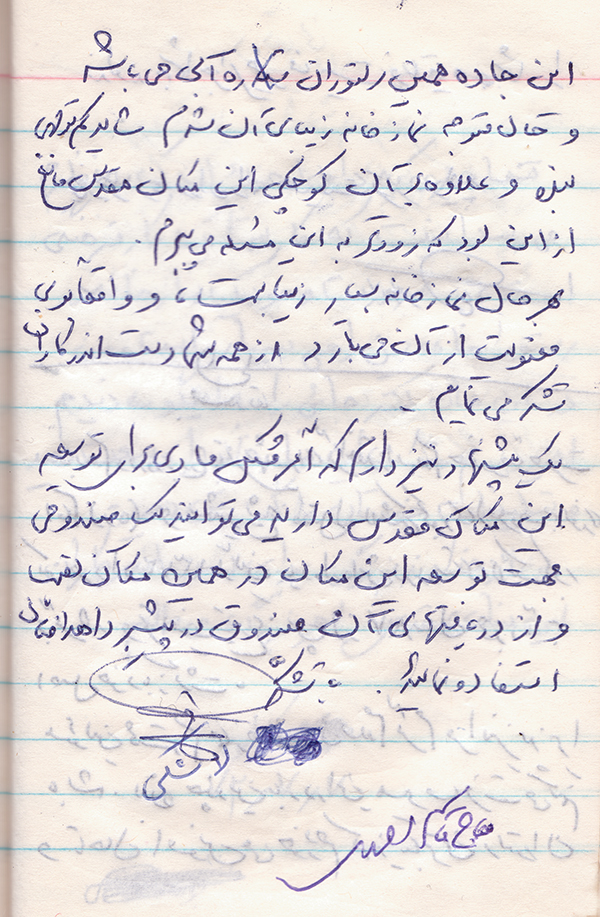 این جاده همین رستوران ستاره آبی می‌باشه
و حال متوجه نمازخانه زیبای آن شدم شاید کم توجهی
بنده و علاوه بر آن کوچکی این مکان مقدس مانع
از این بود که زودتر به این مسئله می‌پردم.
بهر حال نمازخانه بسیار زیبایست، و واقعاً بوی
معنویت از آن می‌بارد از همه شما دست اندرکاران
تشکر می‌نمایم.
یک پیشنهاد نیز دارم که اگر مشکل مادی برای توسعه
این مکان مقدس دارید می‌توانید یک صندوقی
جهت توسعه این مکان در همین مکان نصب
و از دریافتهای آن صندوق در پیشبرد اهدافتان
استفاده نمائید. با تشکر